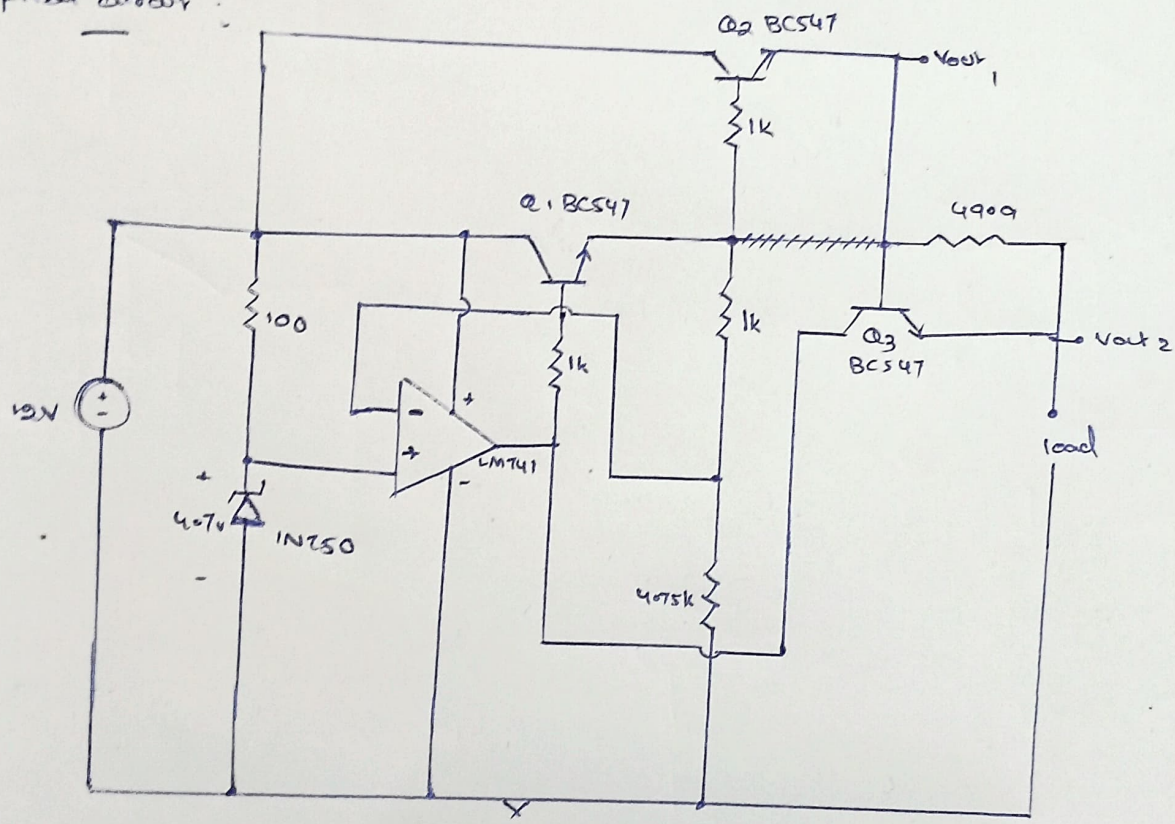 Q2 BC547
Vout 1
1k
Q1 BC547
490Ω
100
1k
1k
Q3
BC547
Vout 2
12V
+
-
-
+
+
-
LM741
load
+
4.7V
-
1N750
4.75k